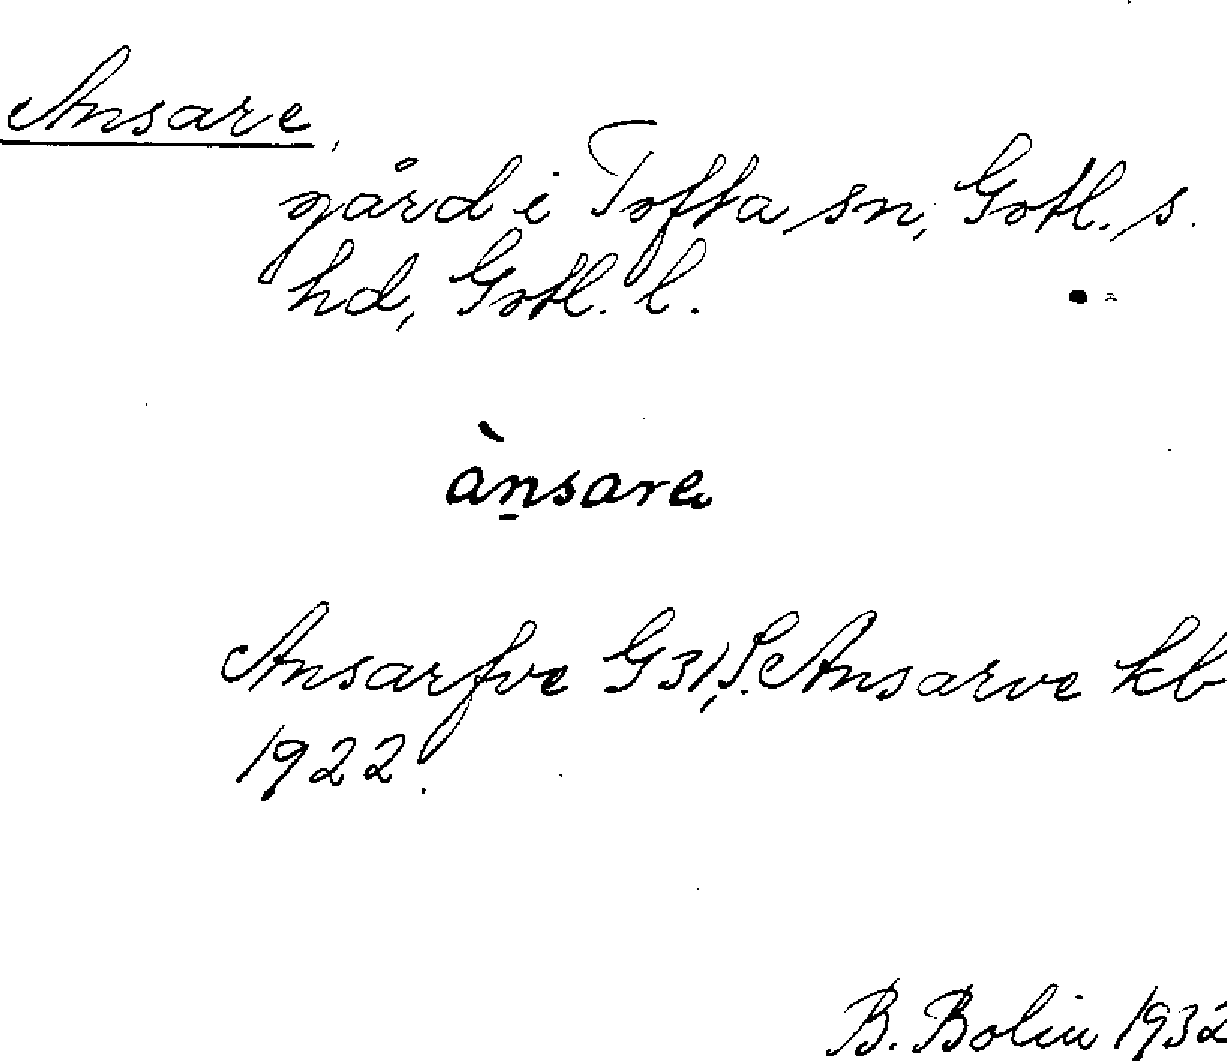 Ansare,
gård i Tofta sn, Gotl. s.
hd, Gotl. l.
ànsare
Ansarfve G31, S. Ansarve kb
1922.
B. Bolin 1932